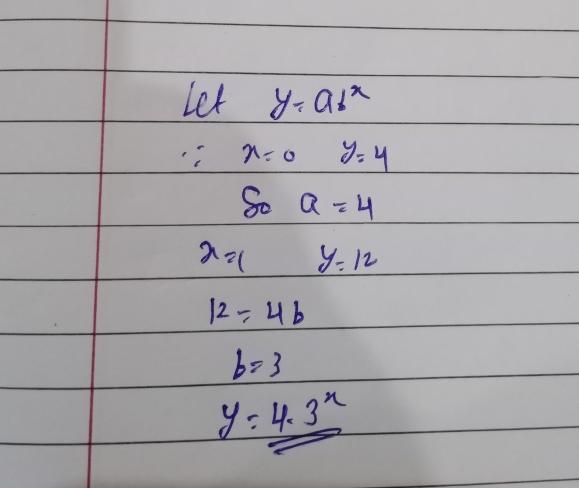 Let y=abˣ
∵ x=0 y=4
So a=4
x=1 y=12
12=4b
b=3
y=4.3ˣ